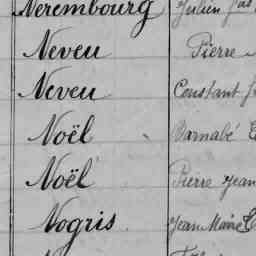 Nerembourg Julien
Neveu Pierre
Neveu Constant
Noël Barnabé
Noël Pierre Jean
Nogris Jean Marie